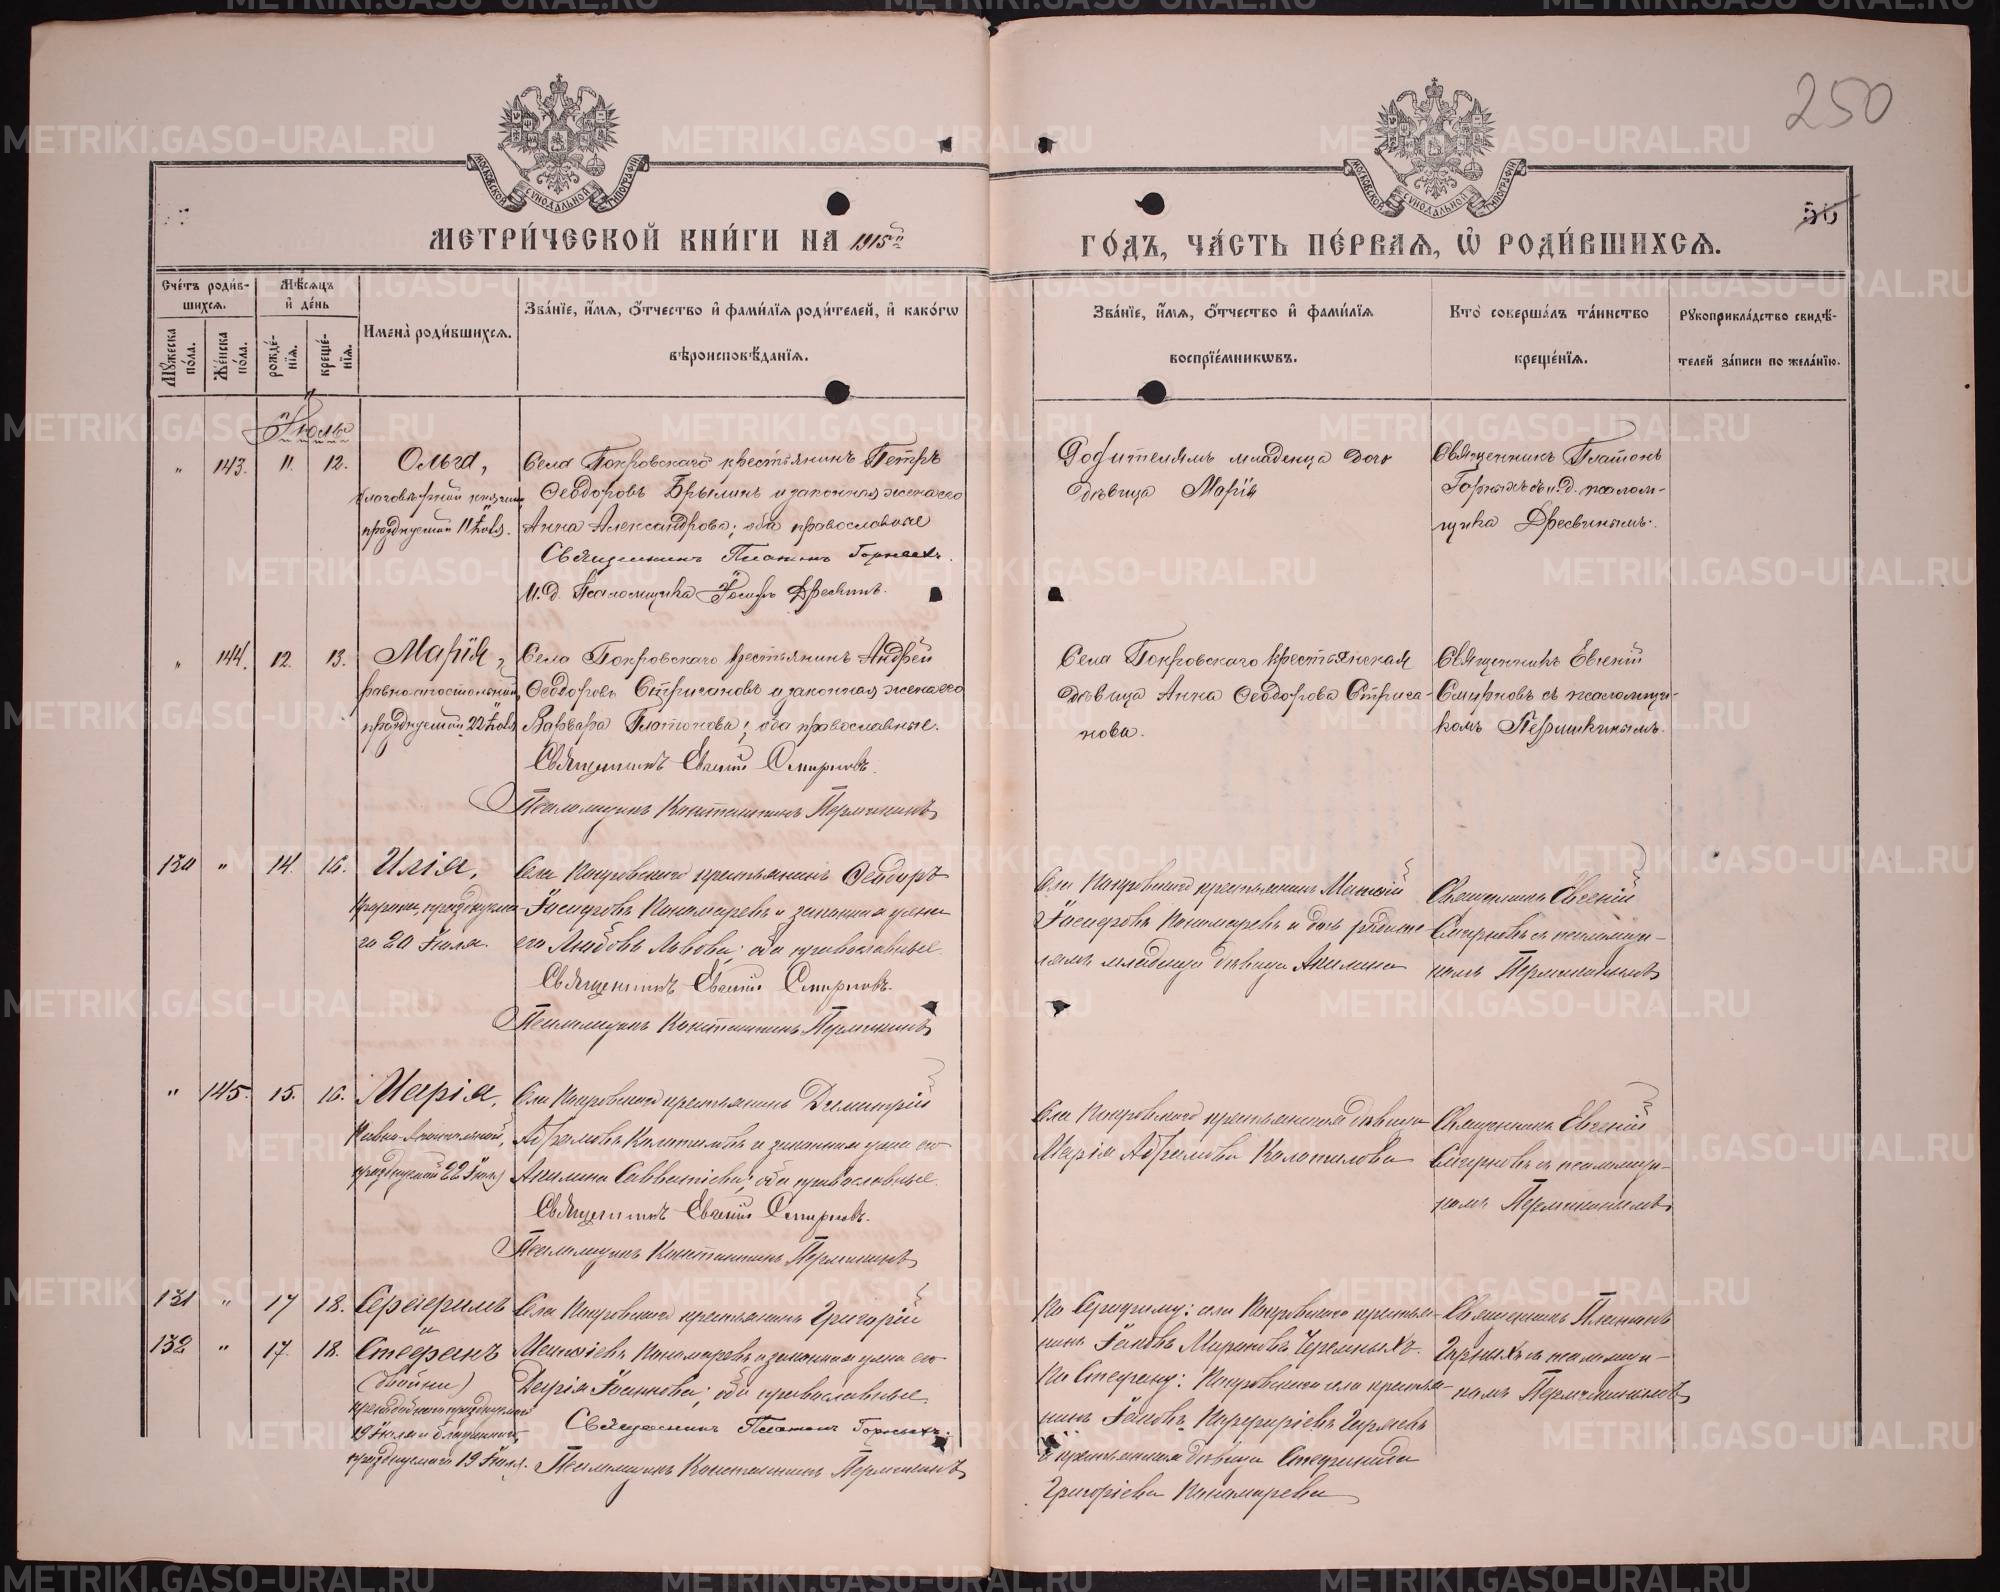 250
МОСКОВСКОЙ СѴНОДАЛЬНОЙ ТИПОГРАФІИ
МОСКОВСКОЙ СѴНОДАЛЬНОЙ ТИПОГРАФІИ
50
МЕТРИ́ЧЕСКОЙ КНИ́ГИ НА 1915й
ГО́ДЪ, ЧА́СТЬ ПЕ́РВАѦ, Ѡ РОДИ́ВШИХСѦ.
Сче́тъ роди́вшихсѧ.
Мѣ́сѧцъ и҆ де́нь
Мꙋ́жеска по́ла.
Же́нска по́ла.
рожде́нїѧ.
креще́нїѧ.
Имена̀ роди́вшихсѧ.
Зва́нїе, и҆́мѧ, ѻ҆́тчество и҆ фами́лїѧ роди́телей, и҆ како́гѡ
вѣроисповѣ́данїѧ.
Зва́нїе, и҆́мѧ, ѻ҆́тчество и҆ фами́лїѧ
воспрїе́мникѡвъ.
Кто̀ соверша́лъ та́инство
креще́нїѧ.
Рꙋкоприкла́дство свидѣ́-
телей за́писи по жела́нїю.
Іюль
" 143. 11. 12. Ольга,
благовѣрной княгини
празднуемой 11 Іюля.
Села Покровскаго крестьянинъ Петръ
Ѳеодоровъ Брылинъ и законная жена его
Анна Александрова; оба православные
Священникъ Платонъ Горныхъ.
И. д. Псаломщика Іосифъ Дресвинъ.
Родителямъ младенца дочь
дѣвица Марія
Священникъ Платонъ
Горныхъ съ и. д. псалом-
щика Дресвинымъ.
" 144. 12. 13. Марія,
равно-апостольной
празднуемой 22 Іюля
Села Покровскаго крестьянинъ Андрей
Ѳеодоровъ Стригановъ и законная жена его
Варвара Платонова; оба православные.
Священникъ Евгеній Смирновъ.
Псаломщикъ Константинъ Перминкинъ
Села Покровскаго крестьянская
дѣвица Анна Ѳеодорова Стрига-
нова.
Священникъ Евгеній
Смирновъ съ псаломщи-
комъ
130 " 14. 16. Илія,
Пророка, празднуема-
го 20 Іюля.
Села Покровскаго крестьянинъ Ѳеодоръ
Іосифовъ Пономаревъ и законная жена
его Любовь Львова; оба православные.
Священникъ Евгеній Смирновъ.
Псаломщикъ Константинъ
Села Покровскаго крестьянинъ Матѳій
Іосифовъ Пономаревъ и дочь родите-
лямъ младенца дѣвица Акилина
Священникъ Евгеній
Смирновъ съ псаломщи-
комъ
" 145. 15. 16. Марія,
Равно-Апостольной,
празднуемой 22 Іюля
Села Покровскаго крестьянинъ Димитрій
Абрамовъ Колотиловъ и законная жена его
Акилина Савватіева; оба православные.
Священникъ Евгеній Смирновъ.
Псаломщикъ Константинъ
Села Покровскаго крестьянская дѣвица
Марія Абрамова Колотилова
Священникъ Евгеній
Смирновъ съ псаломщи-
комъ
131 " 17 18. Серафимъ
и
132 " 17. 18. Стефанъ
(двойни)
преподобнаго празднуемаго
19 Іюля и
празднуемаго 19 Іюля.
Села Покровскаго крестьянинъ Григорій
Матѳіевъ Пономаревъ и законная жена его
Дарія Іоаннова; оба православные
Священникъ Платонъ Горныхъ.
Псаломщикъ Константинъ
По Серафиму: села Покровскаго крестья-
нинъ Іаковъ Мироновъ Черемныхъ.
По Стефану: Покровскаго села крестья-
нинъ Іаковъ Порфиріевъ
и крестьянская дѣвица Стефанида
Григоріева Пономарева
Священникъ Платонъ
Горныхъ съ псаломщи-
комъ